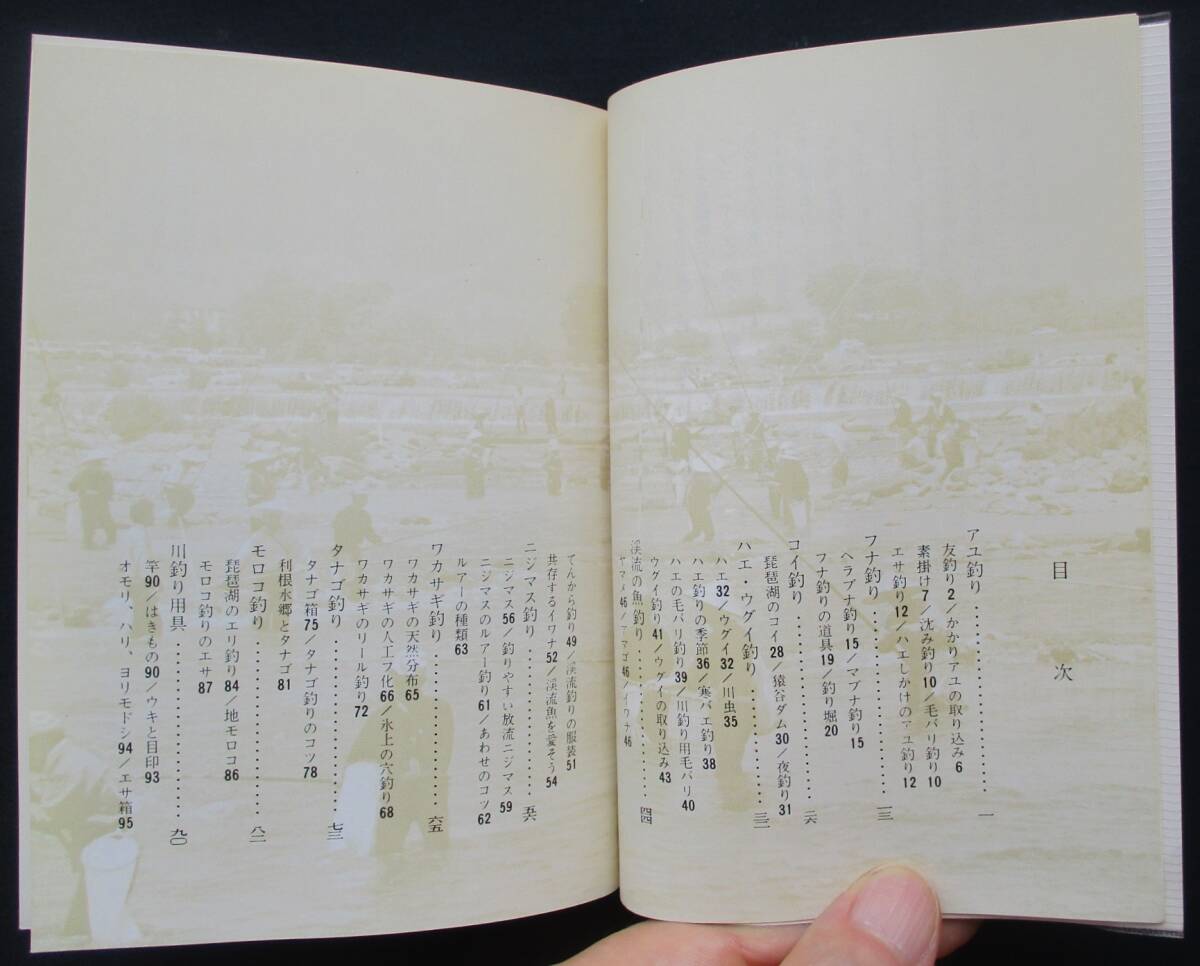 目次
アユ釣り……………一
友釣り2／かかりアユの取り込み6
素掛け7／沈み釣り10／毛バリ釣り10
エサ釣り12／ハエしかけのアユ釣り12
フナ釣り……………一三
ヘラブナ釣り15／マブナ釣り15
フナ釣りの道具19／釣り堀20
コイ釣り……………二六
琵琶湖のコイ28／猿谷ダム30／夜釣り31
ハエ・ウグイ釣り……………三二
ハエ32／ウグイ32／川虫35
ハエ釣りの季節36／寒バエ釣り38
ハエの毛バリ釣り39／川釣り用毛バリ40
ウグイ釣り41／ウグイの取り込み43
渓流の魚釣り……………四四
ヤマメ46／アマゴ46／イワナ46
てんから釣り49／渓流釣りの服装51
共存するイワナ52／渓流魚を愛そう54
ニジマス釣り……………五六
ニジマス56／釣りやすい放流ニジマス59
ニジマスのルアー釣り61／あわせのコツ62
ルアーの種類63
ワカサギ釣り……………六五
ワカサギの天然分布65
ワカサギの人工フ化66／氷上の穴釣り68
ワカサギのリール釣り72
タナゴ釣り……………七三
タナゴ箱75／タナゴ釣りのコツ78
利根水郷とタナゴ81
モロコ釣り……………八二
琵琶湖のエリ釣り84／地モロコ86
モロコ釣りのエサ87
川釣り用具……………九〇
竿90／はきもの90／ウキと目印93
オモリ、ハリ、ヨリモドシ94／エサ箱95